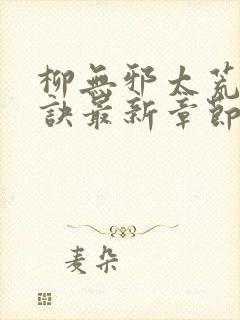 柳無邪太荒
訣最新章節
麦朵